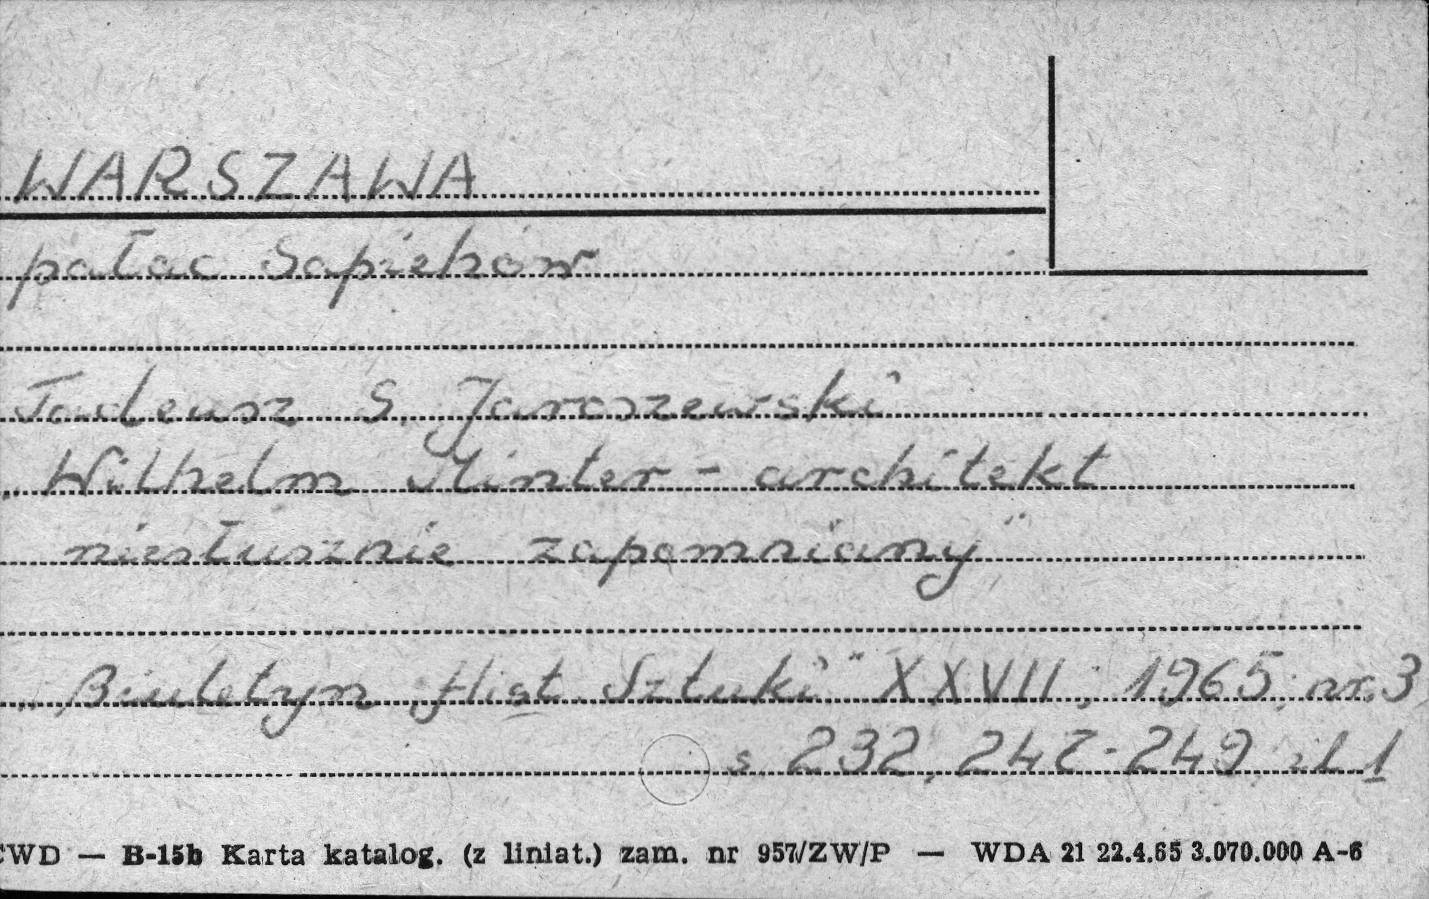 WARSZAWA
pałac Sapiehów
Tadeusz S. Jaroszewski
„Wilhelm Minter - architekt
niesłusznie zapomniany”
„Biuletyn Hist. Sztuki” XXVII, 1965, nr. 3,
s. 232, 247-249, il. 1
CWD — B-15b Karta katalog. (z liniat.) zam. nr 957/ZW/P — WDA 21 22.4.65 3.070.000 A-6